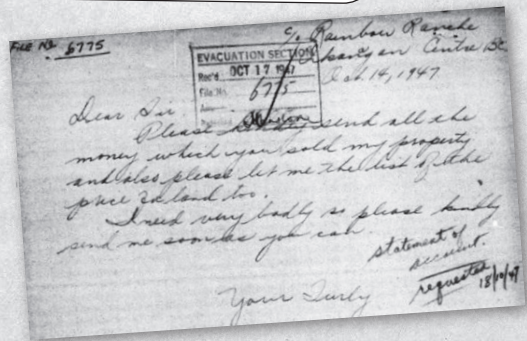 FILE NO. 6775
c/o Rainbow Ranche
Okanagan Centre BC
Oct. 14, 1947
EVACUATION SECTION
Rec'd OCT 17 1947
File No. 6775
Dear Sir
Please send all the
money which you sold my property
and also please let me the list of the
price land too.
I need very badly so please kindly
send me soon as you can.
statement of
account.
requested
18/10/47
Your Turly